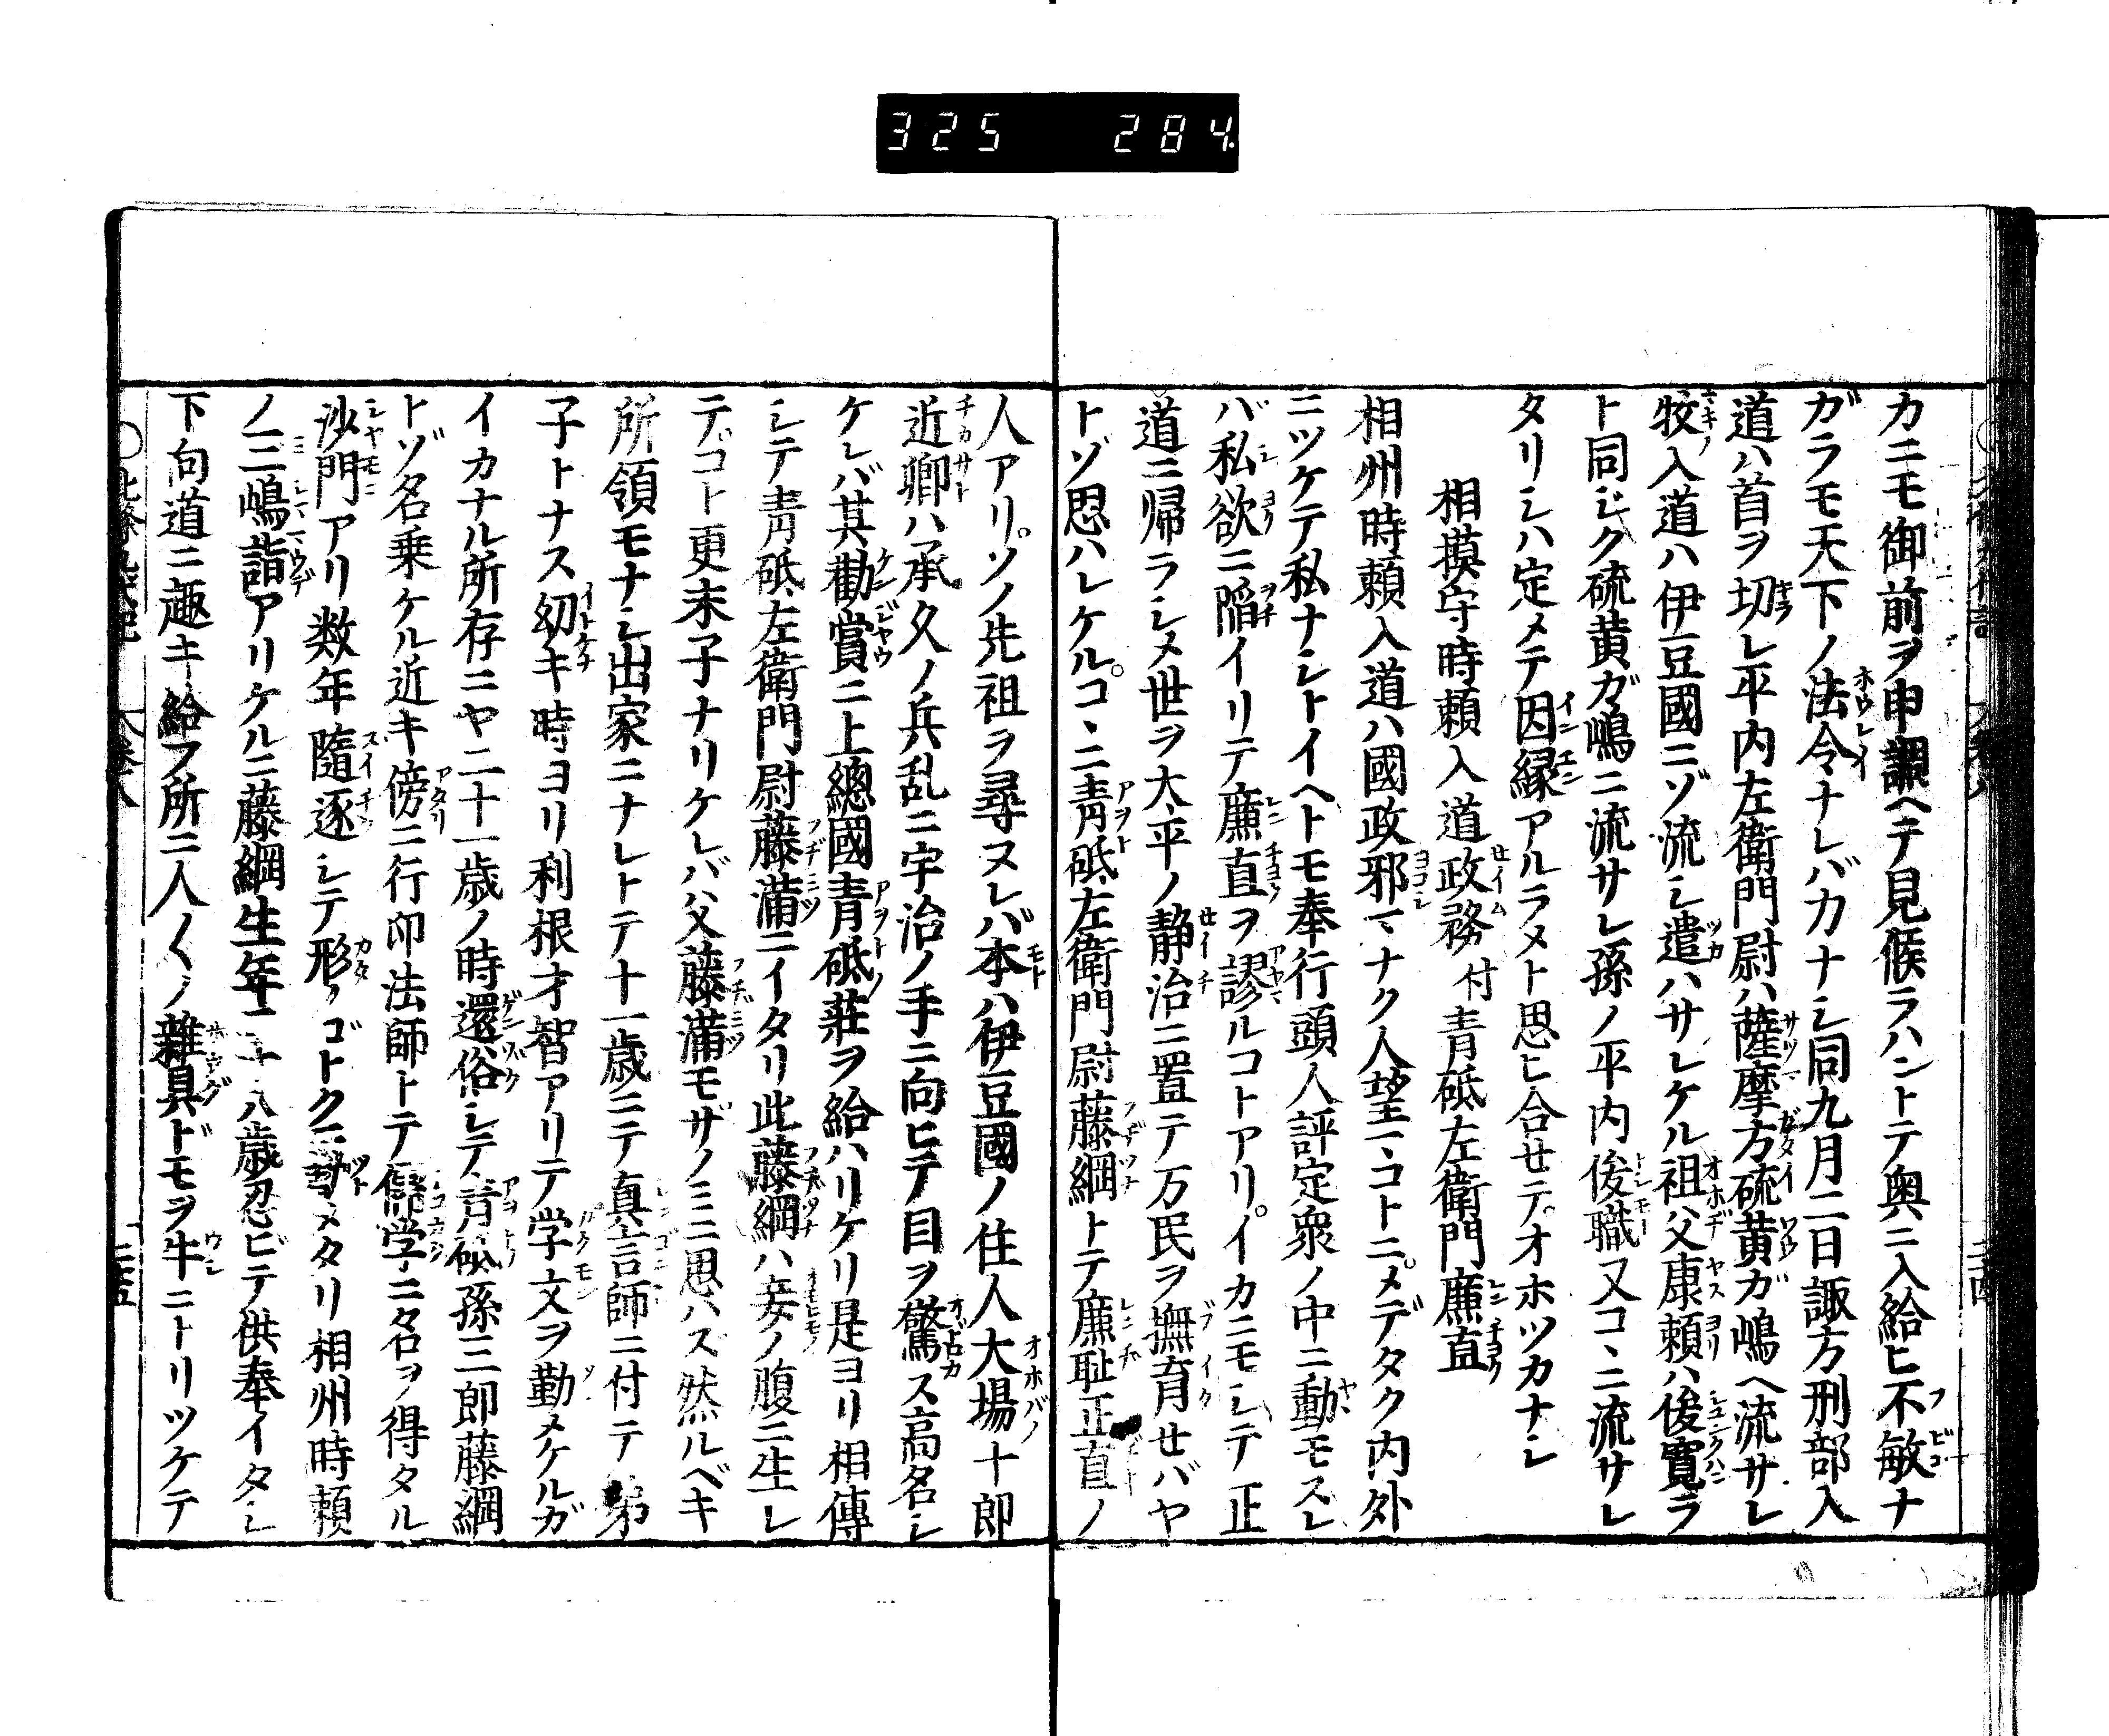 325 284
カニモ御前ヲ申調ヘテ見候ラハントテ奥ニ入給ヒ不敏ナ
ガラモ天下ノ法令ナレバカナシ同九月二日諏方刑部入
道ハ首ヲ切レ平内左衛門尉ハ薩摩方硫黄ガ嶋ヘ流サレ
牧入道ハ伊豆國ニゾ流シ遣ハサレケル祖父康頼ハ俊寛ラ
ト同ジク硫黄ガ嶋ニ流サレ孫ノ平内俊職又コヽニ流サレ
タリシハ定メテ因縁アルラメト思ヒ合セテオホツカナシ
相摸守時頼入道政務付青砥左衛門廉直
相州時頼入道ハ國政邪マナク人望ヽコトニメデタク内外
ニツケテ私ナシトイヘトモ奉行頭人評定衆ノ中ニ動モスレ
バ私欲ニ陥イリテ廉直ヲ謬ルコトアリイカニモシテ正
道ニ帰ラシメ世ヲ大平ノ静治ニ置テ万民ヲ撫育セバヤ
トゾ思ハレケルコヽニ青砥左衛門尉藤綱トテ廉恥正直ノ
人アリソノ先祖ヲ尋ヌレバ本ハ伊豆國ノ住人大場十郎
近郷ハ承久ノ兵乱ニ宇治ノ手ニ向ヒテ目ヲ驚ス高名シ
ケレバ其勸賞ニ上總國青砥荘ヲ給ハリケリ是ヨリ相傳
シテ青砥左衛門尉藤満ニイタリ此藤綱ハ妾ノ腹ニ生レ
テコト更末子ナリケレバ父藤満モサノミ思ハズ然ルベキ
所領モナシ出家ニナレトテ十一歳ニテ真言師ニ付テ弟
子トナス幼キ時ヨリ利根才智アリテ学文ヲ勤メケルガ
イカナル所存ニヤ二十一歳ノ時還俗シテ青砥孫三郎藤綱
トゾ名乗ケル近キ傍ニ行印法師トテ儒学ニ名ヲ得タル
沙門アリ数年隨逐シテ形ノゴトクニ勤メタリ相州時頼
ノ三嶋詣アリケルニ藤綱生年二十八歳忍ビテ供奉イタシ
下向道ニ趣キ給フ所ニ人〱ノ雜具ドモヲ牛ニトリツケテ